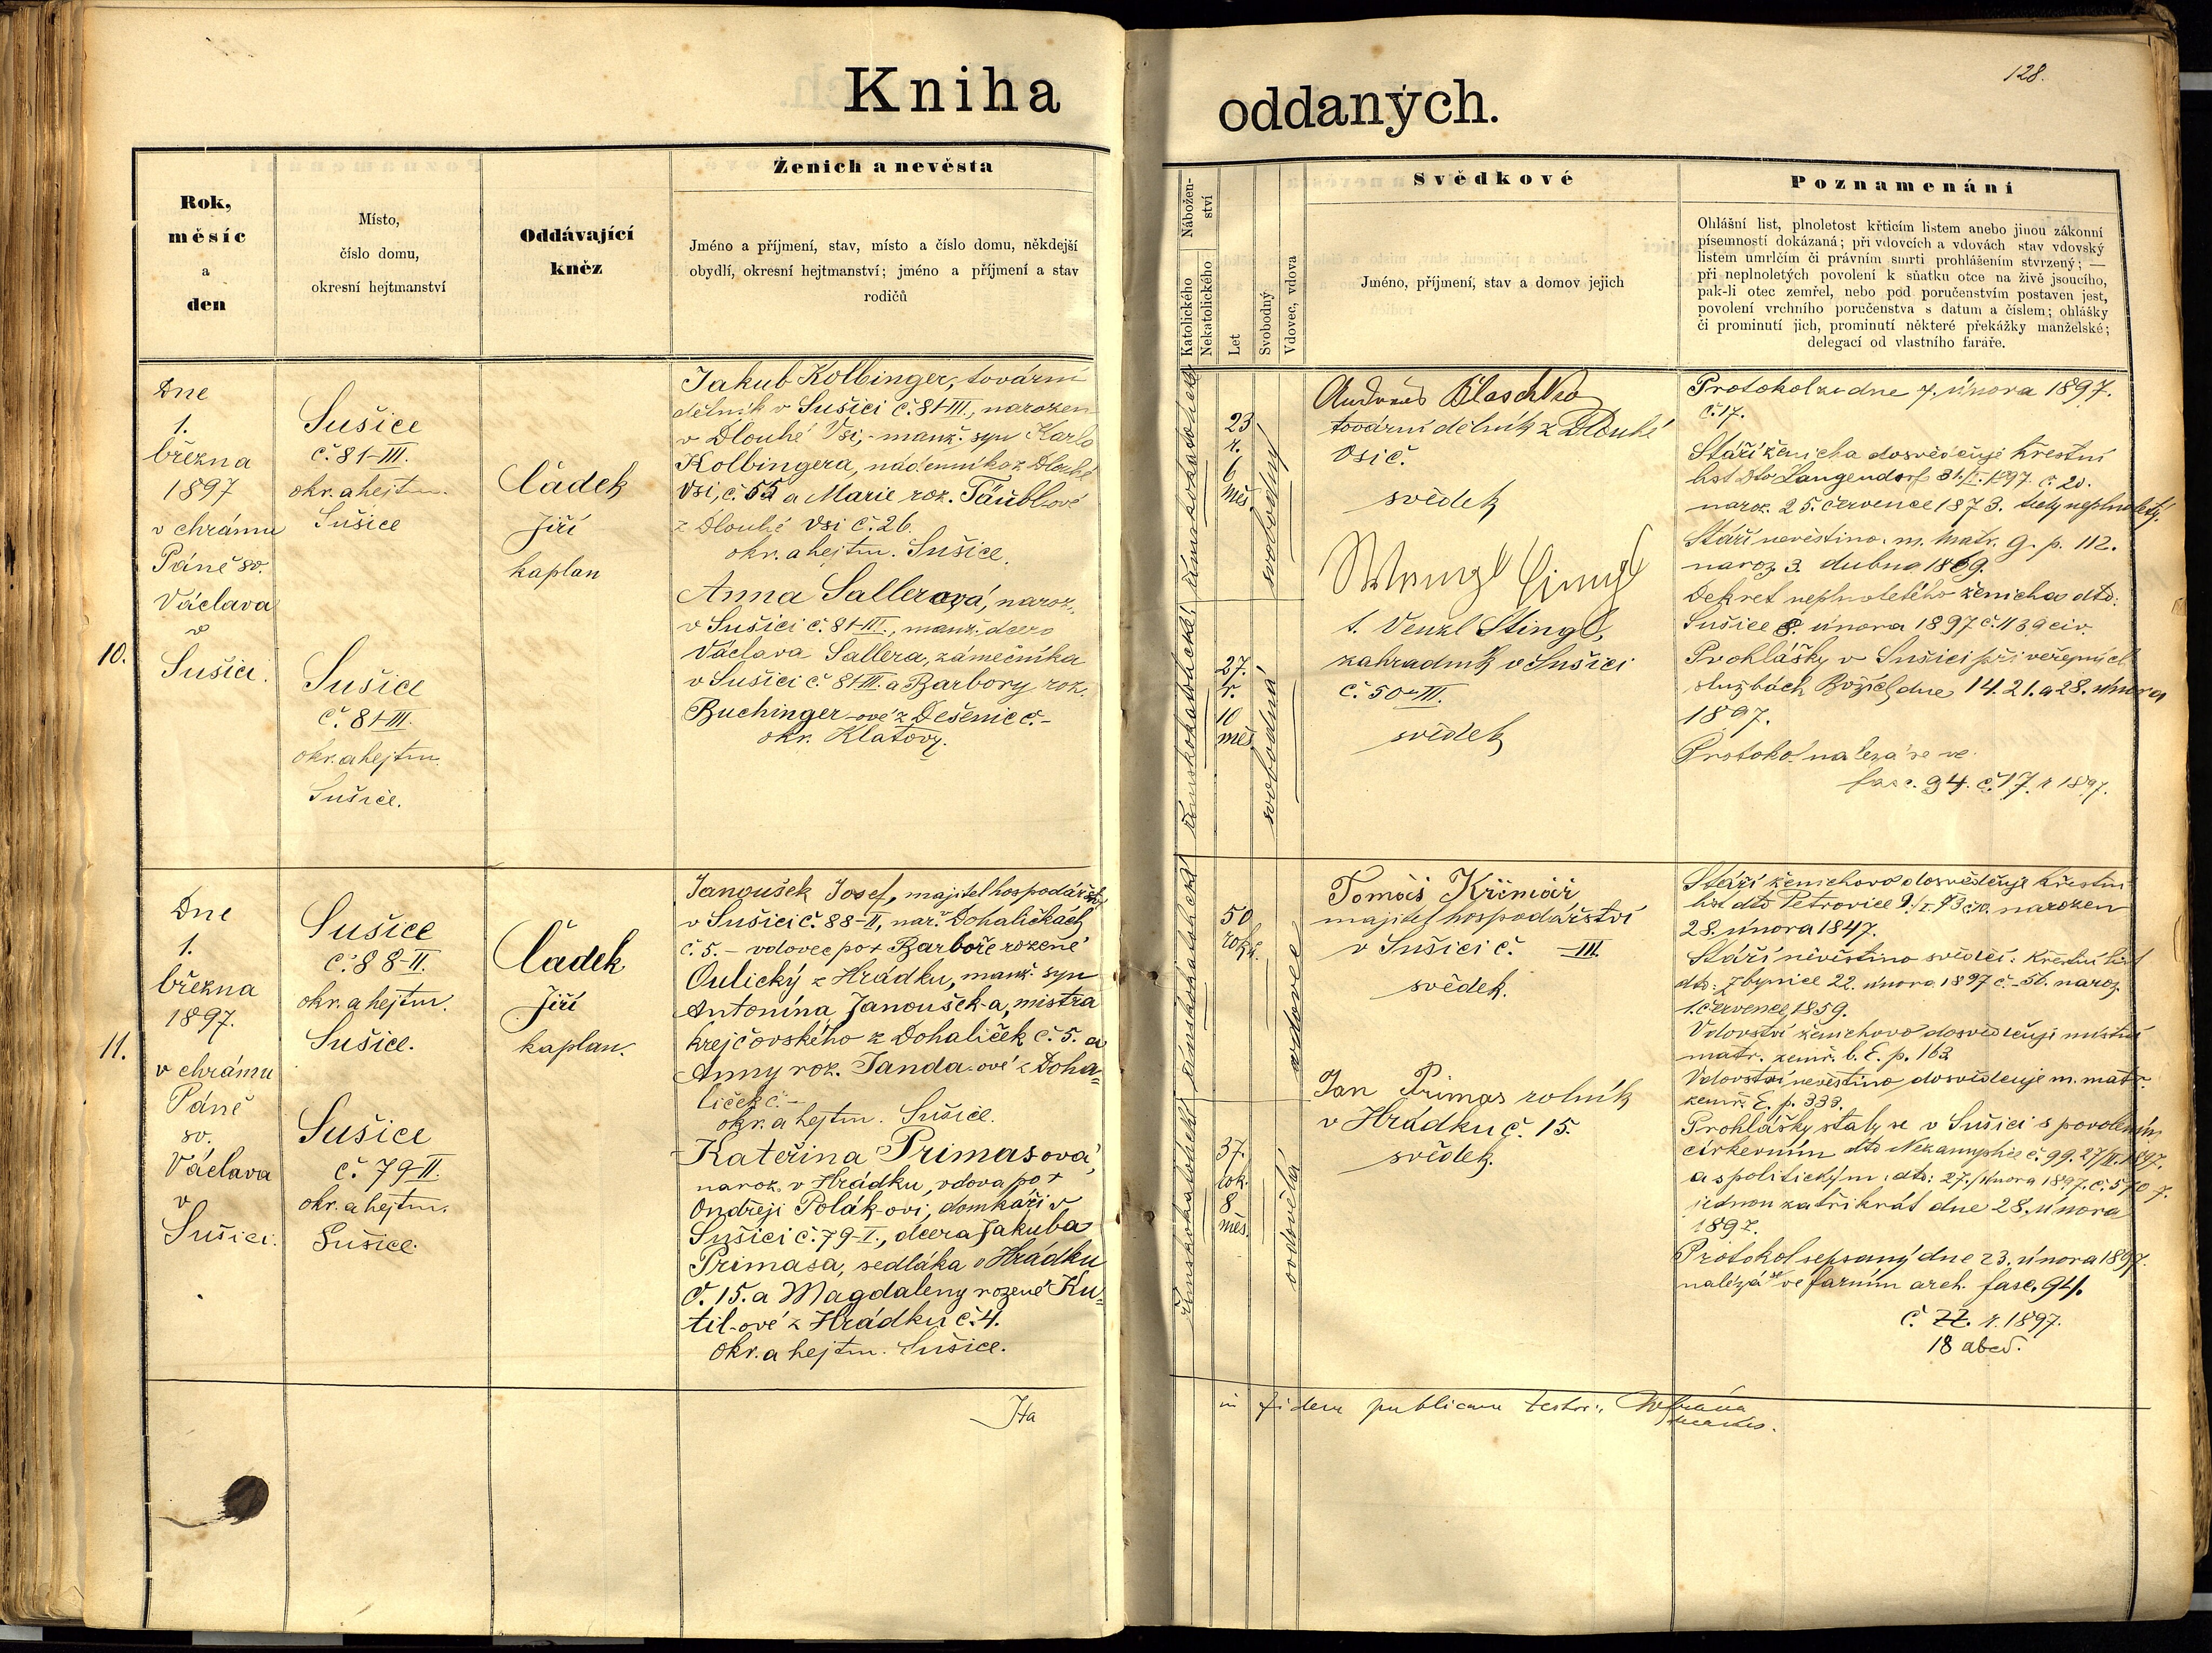 Kniha
oddaných.
128.
Rok,
měsíc
a
den
Místo,
číslo domu,
okresní hejtmanství
Oddávající
kněz
Ženich a nevěsta
Jméno a příjmení, stav, místo a číslo domu, někdejší
obydlí, okresní hejtmanství; jméno a příjmení a stav
rodičů
Nábožen-
ství
Katolického
Nekatolického
Let
Svobodný
Vdovec, vdova
Svědkové
Jméno, příjmení, stav a domov jejich
Poznamenání
Ohlášní list, plnoletost křticím listem anebo jinou zákonní
písemností dokázaná; při vdovcích a vdovách stav vdovský
listem úmrlčím či právním smrti prohlášením stvrzený; —
při neplnoletých povolení k sňatku otce na živě jsoucího,
pak-li otec zemřel, nebo pod poručenstvím postaven jest,
povolení vrchního poručenstva s datum a číslem; ohlášky
či prominutí jich, prominutí některé překážky manželské;
delegací od vlastního faráře.
10.
Dne
1.
března
1897
v chrámu
Páně sv.
Václava
v
Sušici.
Sušice
č. 81-III.
okr. a hejtm.
Sušice
Sušice
č. 81-III.
okr. a hejtm.
Sušice.
Čádek
Jiří
kaplan
Jakub Kolbinger, tovární
dělník v Sušici č. 81-III., narozen
v Dlouhé Vsi, manž. syn Karla
Kolbingera, nádenníka z Dlouhé
Vsi, č. 55 a Marie roz. Täublové
z Dlouhé Vsi č. 26.
okr. a hejtm. Sušice.
Anna Sallerová, naroz.
v Sušici č. 81-III., manž. dcera
Václava Sallera, zámečníka
v Sušici č. 81-III. a Barbory roz.
Buchinger-ové z Dešenic č.-
okr. Klatovy.
římskokatolické
římskokatolické
23
r.
6
měs.
27.
r.
10
měs.
svobodný
svobodná
Andreas Blaschko
tovární dělník z Dlouhé
Vsi č.
svědek
Wenzl Stingl
t. Venzl Stingl,
zahradník v Sušici
č. 50-III.
svědek
Protokol ze dne 7. února 1897.
č. 17.
Stáří ženicha dosvědčuje křestní
list dto Langendorf 31./I. 1897. č. 20.
naroz. 25. července 1873. tedy neplnoletý.
Stáří nevěstino: m. matr. G. p. 112.
naroz 3. dubna 1869.
Dekret neplnoletého ženicha dtd.
Sušice 8. února 1897 č. 1139 civ.
Prohlášky v Sušici při veřejných
službách Božích dne 14. 21. a 28. února
1897.
Protokol nalezá se ve
fasc. 94. č. 17. r 1897.
11.
Dne
1.
března
1897.
v chrámu
Páně
sv.
Václava
v
Sušici.
Sušice
č. 88-II.
okr. a hejtm.
Sušice.
Sušice
č. 79-II.
okr. a hejtm.
Sušice.
Čádek
Jiří
kaplan.
Janoušek Josef, majitel hospodářství
v Sušici č. 88-II, nar. v Dohaličkách
č. 5. - vdovec po + Barboře rozené
Oulický z Hrádku, manž. syn
Antonína Janoušek-a, mistra
krejčovského z Dohaliček č. 5. a
Anny roz. Janda-ové z Doha-
liček č.-
okr. a hejtm. Sušice.
Kateřina Primasová,
naroz. v Hrádku, vdova po +
Ondřeji Polák-ovi, domkáři v
Sušici č. 79-I., dcera Jakuba
Primasa, sedláka v Hrádku
č. 15. a Magdaleny rozené Ku-
til-ové z Hrádku č. 4.
okr. a hejtm. Sušice.
římskokatolické
římskokatolické
50
roků.
37.
rok.
8
měs.
vdovec
ovdovělá
Tomáš Křinář
majitel hospodářství
v Sušici č. -III.
svědek.
Jan Primas rolník
v Hrádku č. 15.
svědek.
Stáří ženichovo dosvědčuje křestní
list dto Petrovice narozen
28. února 1847.
Stáří nevěstino svědčí: křestní list
dto: Zbynice 22. února 1897 č.-56. naroz.
1. července 1859.
Vdovství ženichovo dosvědčuje místní
matr. zemř. l. E. p. 163
Vdovství nevěstino dosvědčuje m. matr.
zemř. E. p. 333.
Prohlášky staly se v Sušici s povolením
církevním dto č. 99. 27/II. 1897.
a s politickým: dto: 27. února 1897. č. 5707.
jednou za třikrát dne 28. února
1897.
Protokol sepsaný dne 23. února 1897.
nalézá se ve farním arch. fasc. 94.
č. r. 1897.
18 abcd.
Ita
in fidem publicam testor: